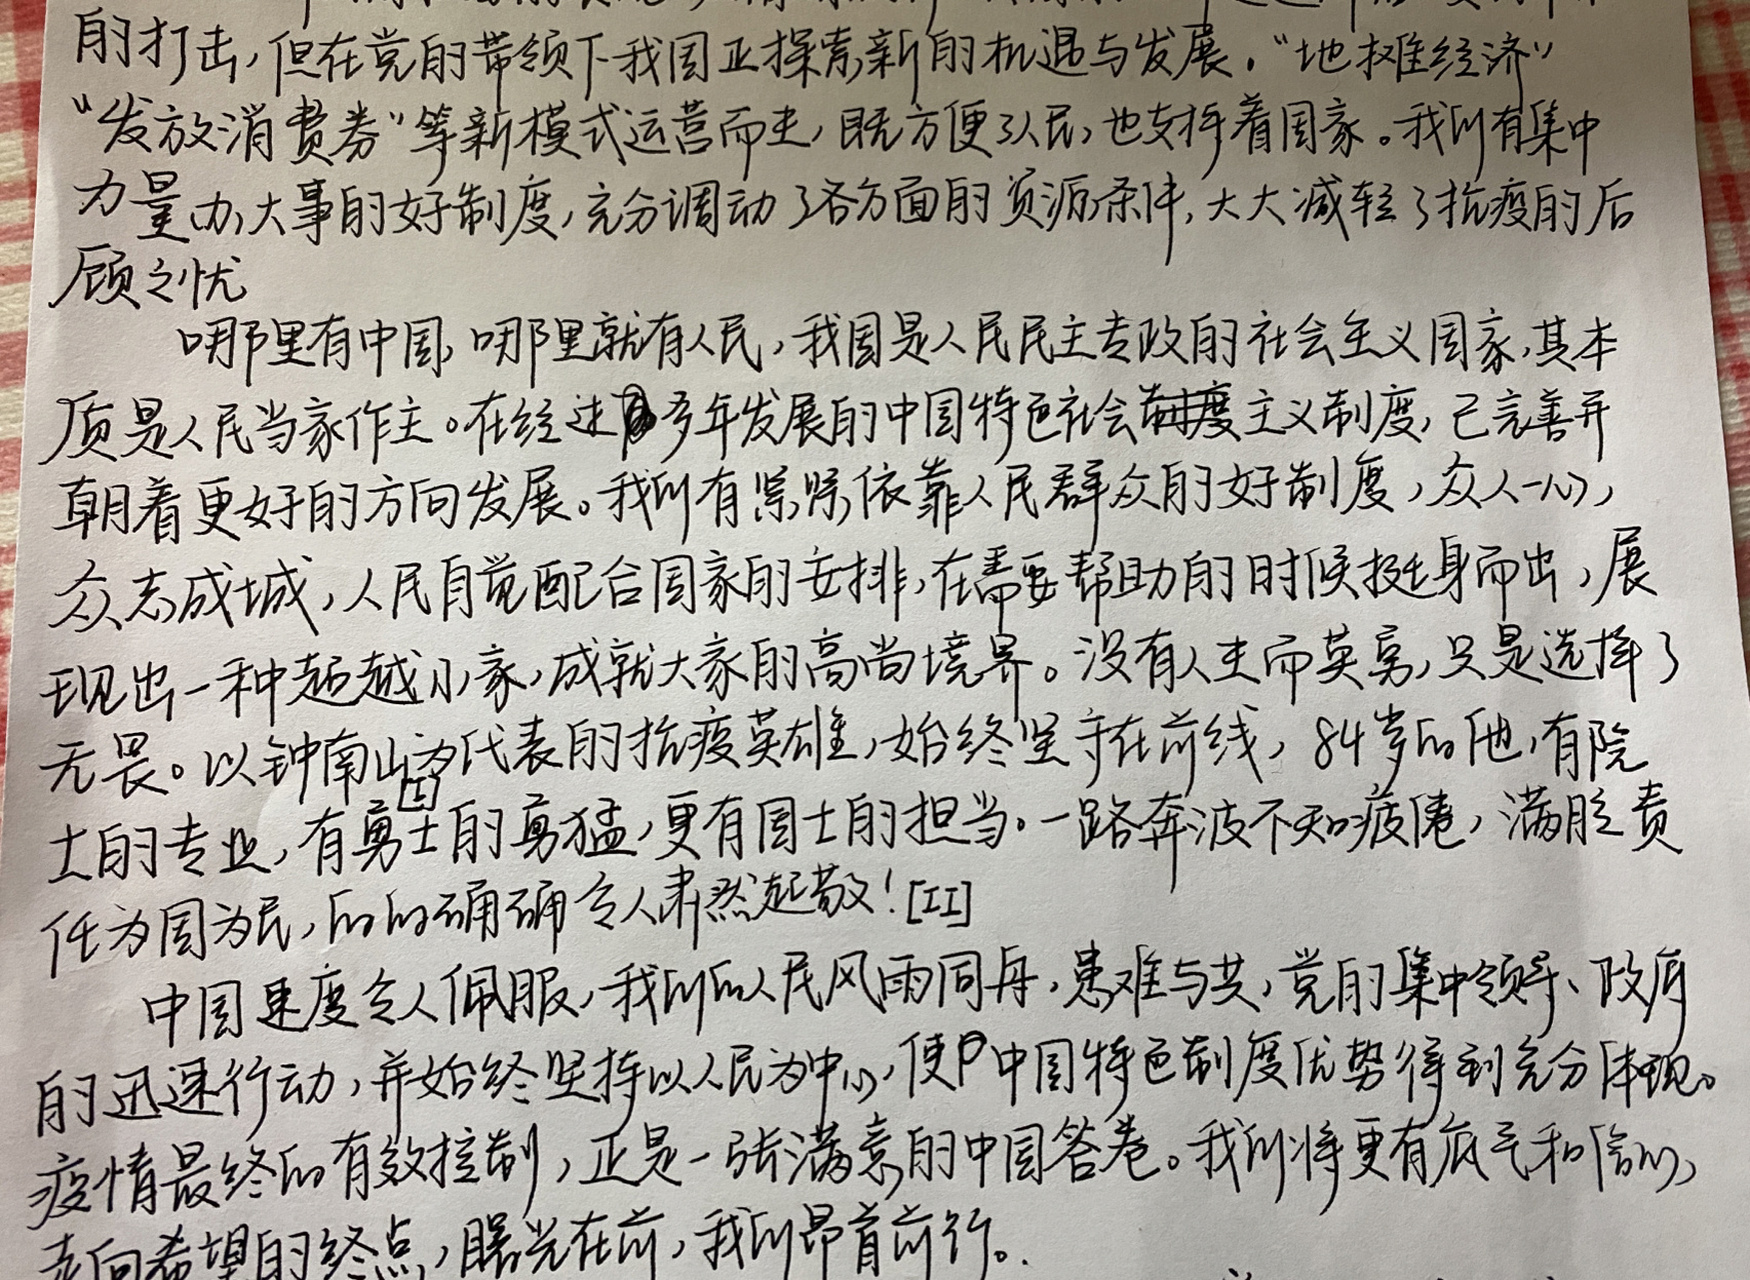 的打击，但在党的带领下我国正探索新的机遇与发展。“地摊经济”
“发放消费券”等新模式运营而生，既方便了人民，也支持着国家。我们有集中
力量办大事的好制度，充分调动了各方面的资源条件，大大减轻了抗疫的后
顾之忧
哪里有中国，哪里就有人民，我国是人民民主专政的社会主义国家，其本
质是人民当家作主。在经过多年发展的中国特色社会主义制度，已完善并
朝着更好的方向发展。我们有紧紧依靠人民群众的好制度，众人一心，
众志成城，人民自觉配合国家的安排，在需要帮助的时候挺身而出，展
现出一种超越小家，成就大家的高尚境界。没有人生而英勇，只是选择了
无畏。以钟南山为代表的抗疫英雄，始终坚守在前线，84岁的他，有院
士的专业，有勇士的勇猛，更有国士的担当。一路奔波不知疲倦，满腔责
任为国为民，的的确确令人肃然起敬！[II]
中国速度令人佩服，我们的人民风雨同舟，患难与共，党的集中领导、政府
的迅速行动，并始终坚持以人民为中心，使中国特色制度优势得到充分体现。
疫情最终的有效控制，正是一张满意的中国答卷。我们将更有底气和信心，
走向希望的终点，曙光在前，我们昂首前行。